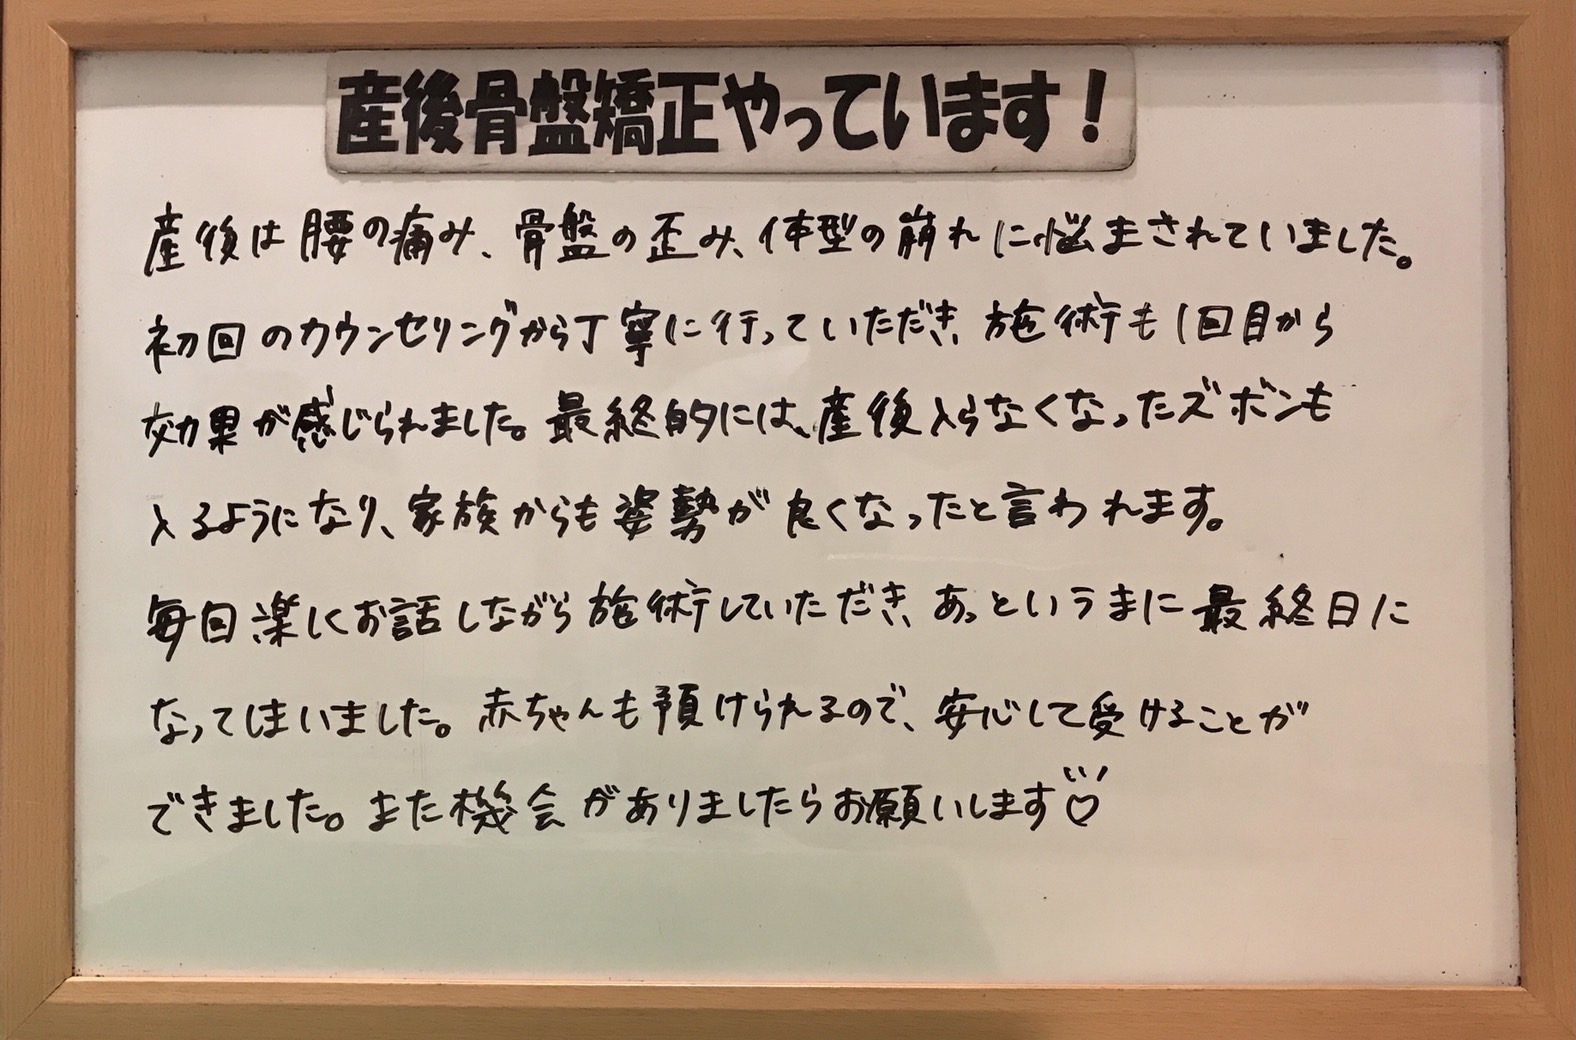 産後骨盤矯正やっています!
産後は腰の痛み、骨盤の歪み、体型の崩れに悩まされていました。
初回のカウンセリングから丁寧に行っていただき、施術も1回目から
効果が感じられました。最終的には、産後入らなくなったズボンも
入るようになり、家族からも姿勢が良くなったと言われます。
毎回楽しくお話しながら施術していただき、あっというまに最終日に
なってしまいました。赤ちゃんも預けられるので、安心して受けることが
できました。また機会がありましたらお願いします♡